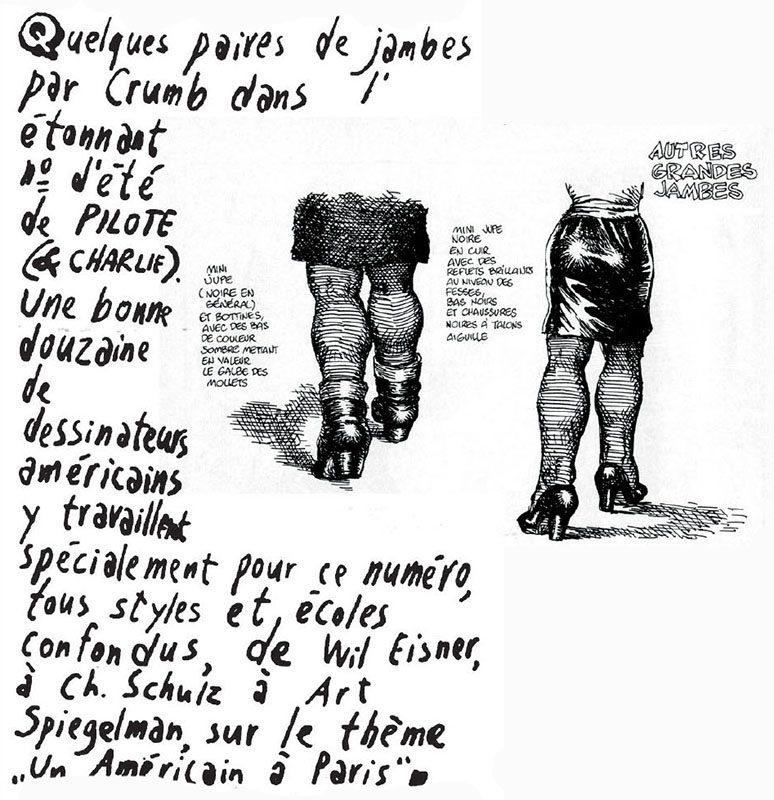 Quelques paires de jambes
par Crumb dans l'
étonnant
nº d'été
de PILOTE
(& CHARLIE).
Une bonne
douzaine
de
dessinateurs
américains
y travaillent
spécialement pour ce numéro,
tous styles et écoles
confondus, de Wil Eisner,
à Ch. Schulz à Art
Spiegelman, sur le thème
„Un Américain à Paris".
MINI
JUPE
(NOIRE EN
GÉNÉRAL)
ET BOTTINES,
AVEC DES BAS
DE COULEUR
SOMBRE METTANT
EN VALEUR
LE GALBE DES
MOLLETS
MINI JUPE
NOIRE
EN CUIR
AVEC DES
REFLETS BRILLANTS
AU NIVEAU DES
FESSES,
BAS NOIRS
ET CHAUSSURES
NOIRES À TALONS
AIGUILLE
AUTRES
GRANDES
JAMBES